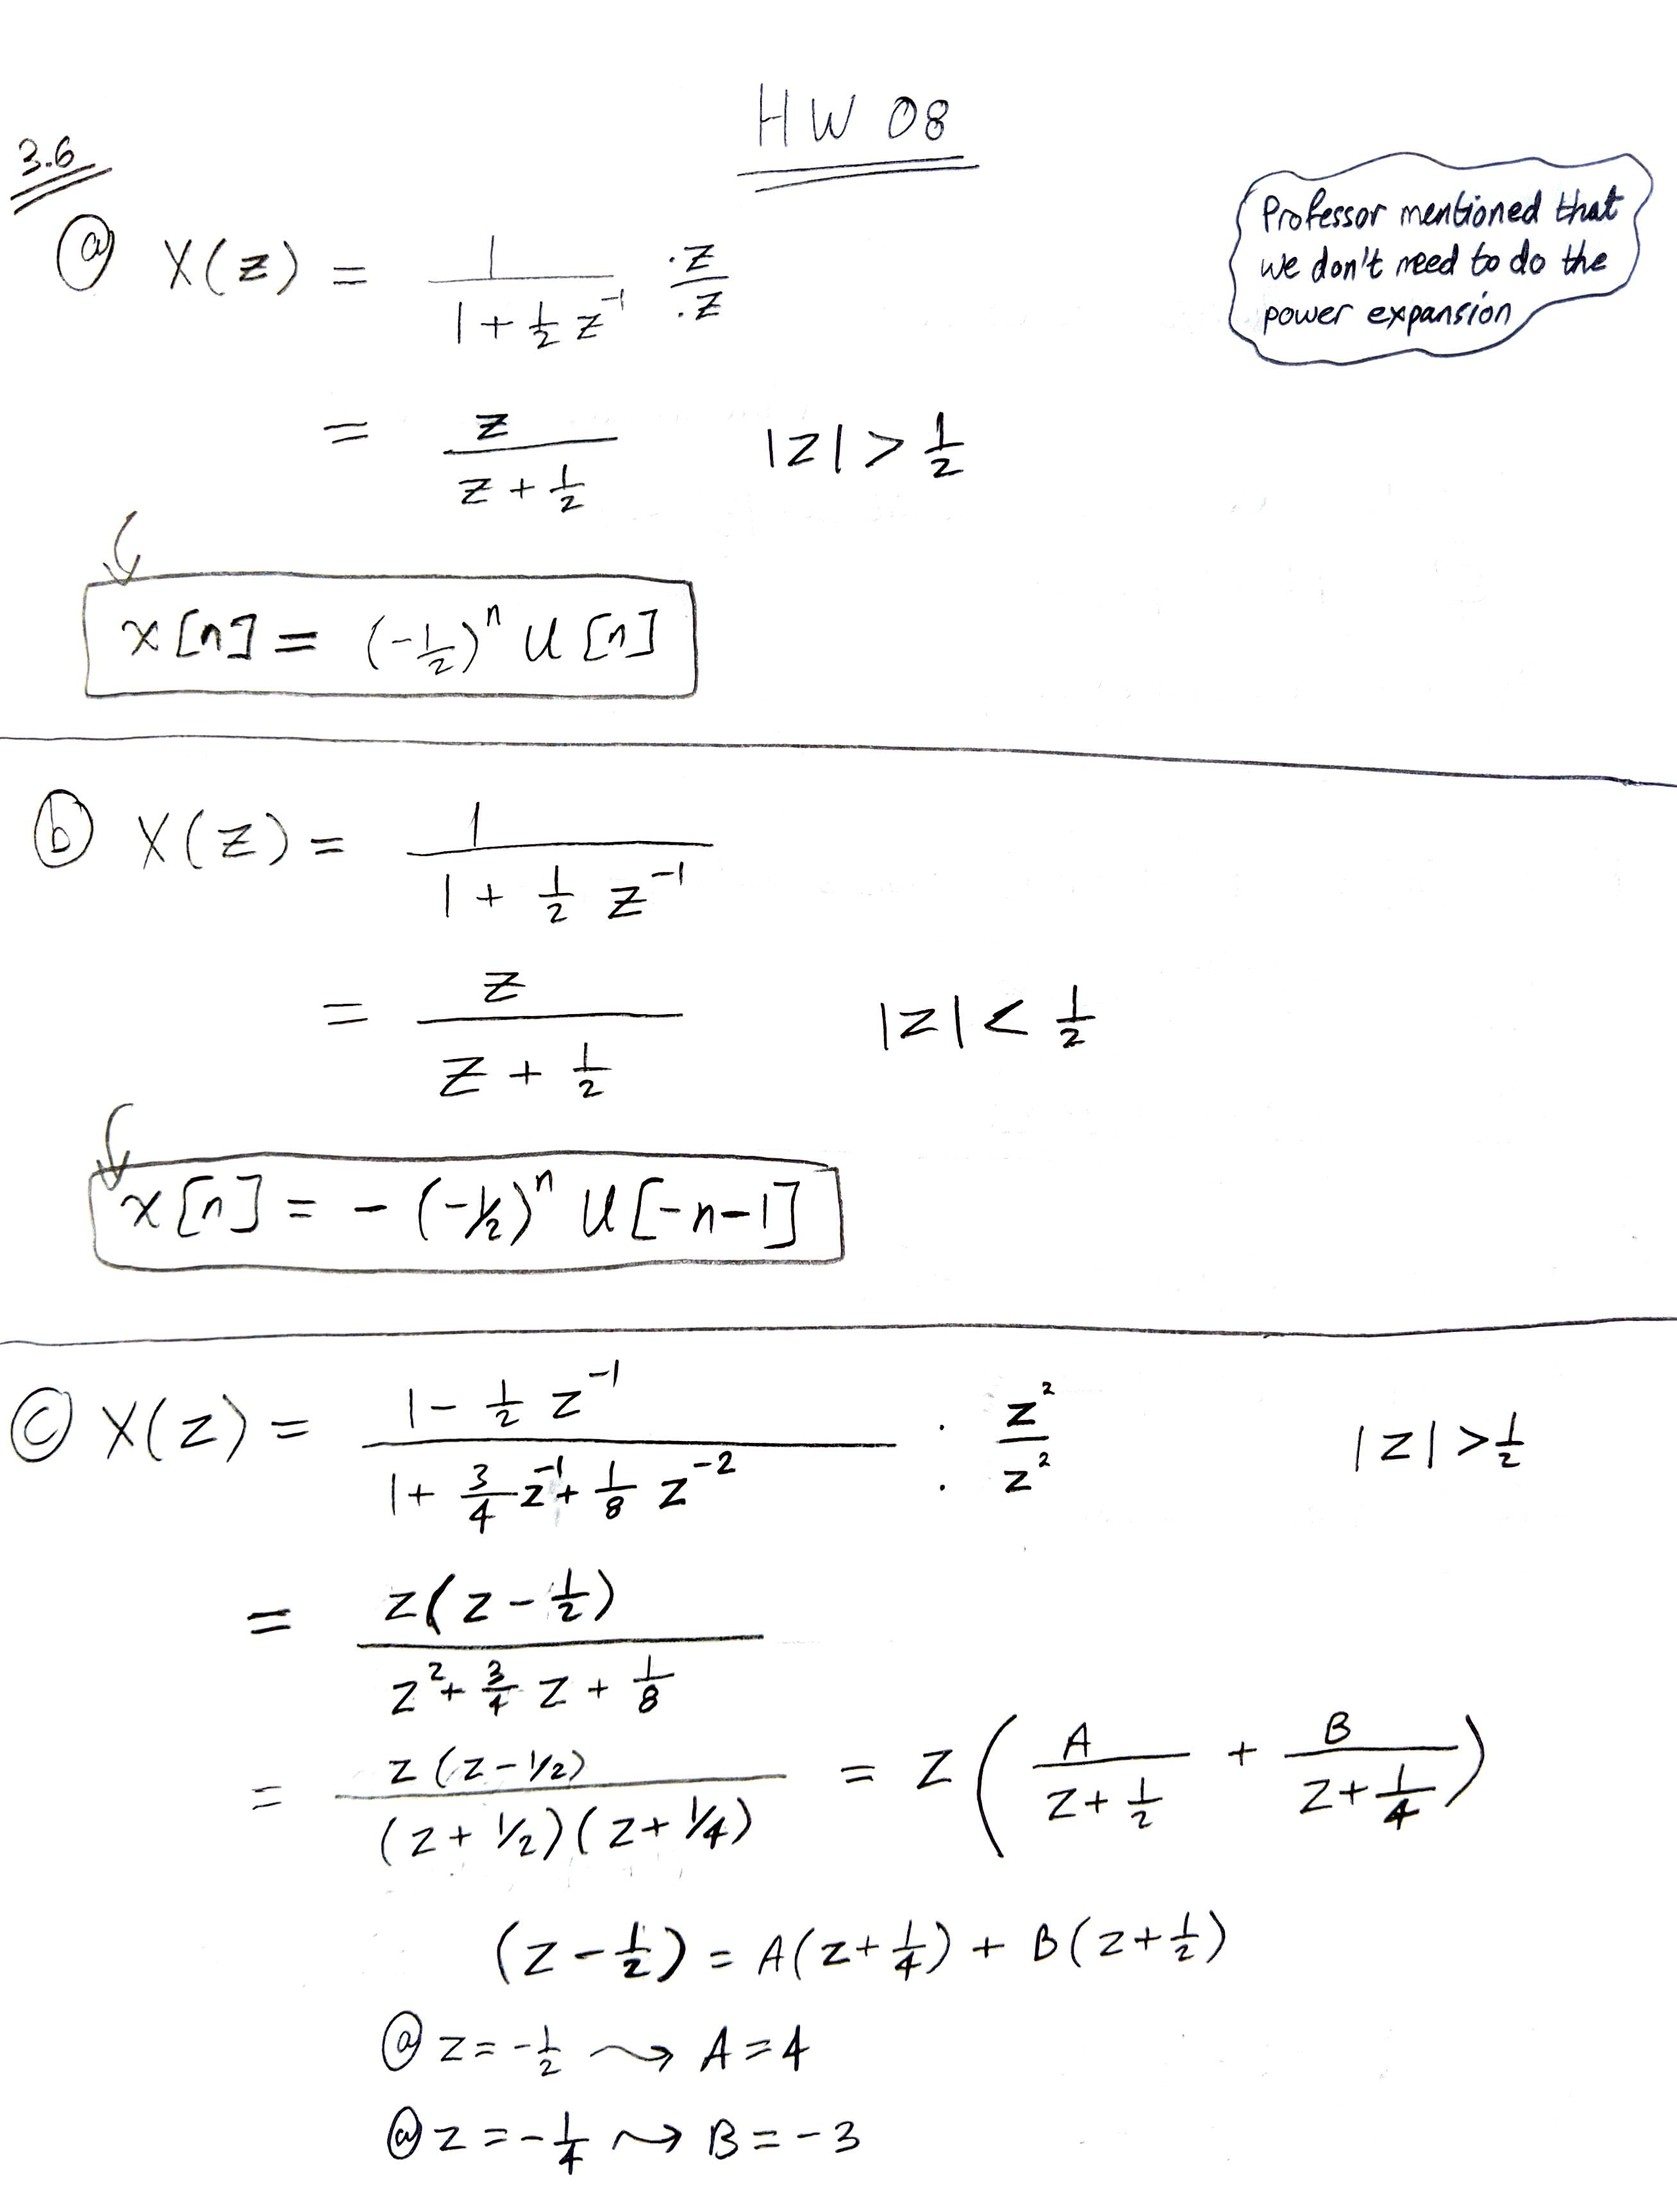 HW 08
3.6
Professor mentioned that
we don't need to do the
power expansion
(a) X(z) = 1 / (1 + 1/2 z^-1) · z / · z
= z / (z + 1/2)    |z| > 1/2
x[n] = (-1/2)^n u[n]
(b) X(z) = 1 / (1 + 1/2 z^-1)
= z / (z + 1/2)    |z| < 1/2
x[n] = - (-1/2)^n u[-n-1]
(c) X(z) = (1 - 1/2 z^-1) / (1 + 3/4 z^-1 + 1/8 z^-2) · z^2 / · z^2    |z| > 1/2
= z(z - 1/2) / (z^2 + 3/4 z + 1/8)
= z(z - 1/2) / ((z + 1/2)(z + 1/4)) = z ( A / (z + 1/2) + B / (z + 1/4) )
(z - 1/2) = A(z + 1/4) + B(z + 1/2)
@ z = -1/2 ⇝ A = 4
@ z = -1/4 ⇝ B = -3